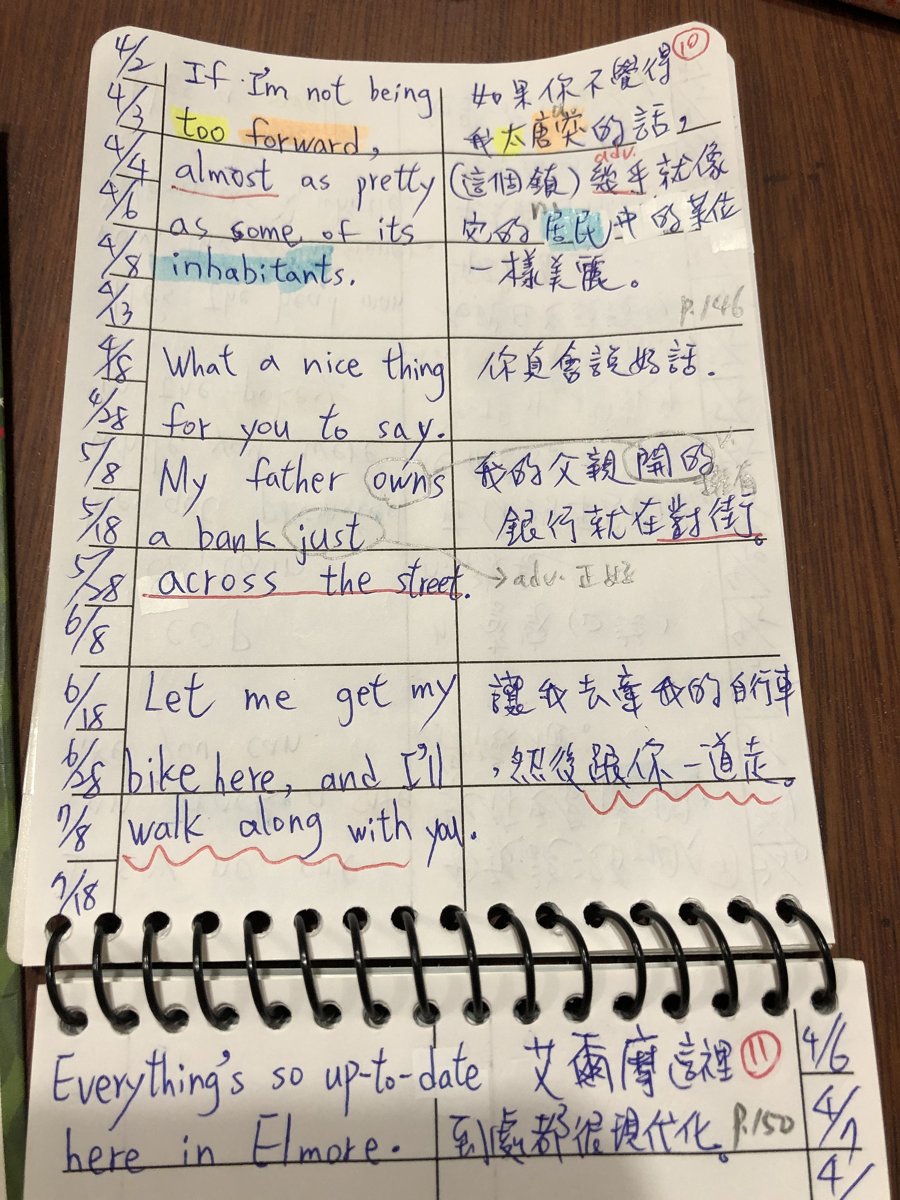 4/2
4/3
4/4
4/6
4/8
4/13
4/18
4/28
5/8
5/18
5/28
6/8
6/18
6/28
7/8
7/18
If I'm not being
too forward,
almost as pretty
as some of its
inhabitants.
⑩
如果你不覺得
我太唐突的話,
adv.
(這個鎮)幾乎就像
n.
它的居民中的某位
一樣美麗。
p.146
What a nice thing
for you to say.
你真會說好話.
My father owns
a bank just
across the street.
我的父親開的
v.
擁有
銀行就在對街。
→adv. 正好
Let me get my
bike here, and I'll
walk along with you.
讓我去牽我的自行車
,然後跟你一道走。
Everything's so up-to-date
here in Elmore.
艾爾摩這裡
⑪
到處都很現代化。
p.150
4/6
4/7
4/